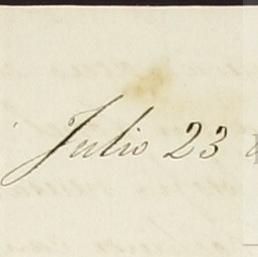 Julio 23